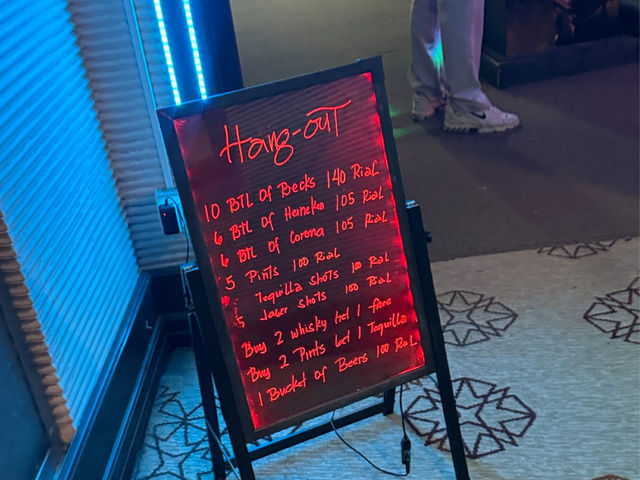 Hang-ouT
10 BTL Of Becks 140 Rial
6 BTL Of Heineken 105 Rial
6 BTL Of Corona 105 Rial
5 Pints 100 Rial
Tequilla shots 100 Rial
5 Jager shots 100 Rial
Buy 2 whisky Get 1 free
Buy 2 Pints Get 1 Tequilla
1 Bucket of Beers 100 Rial